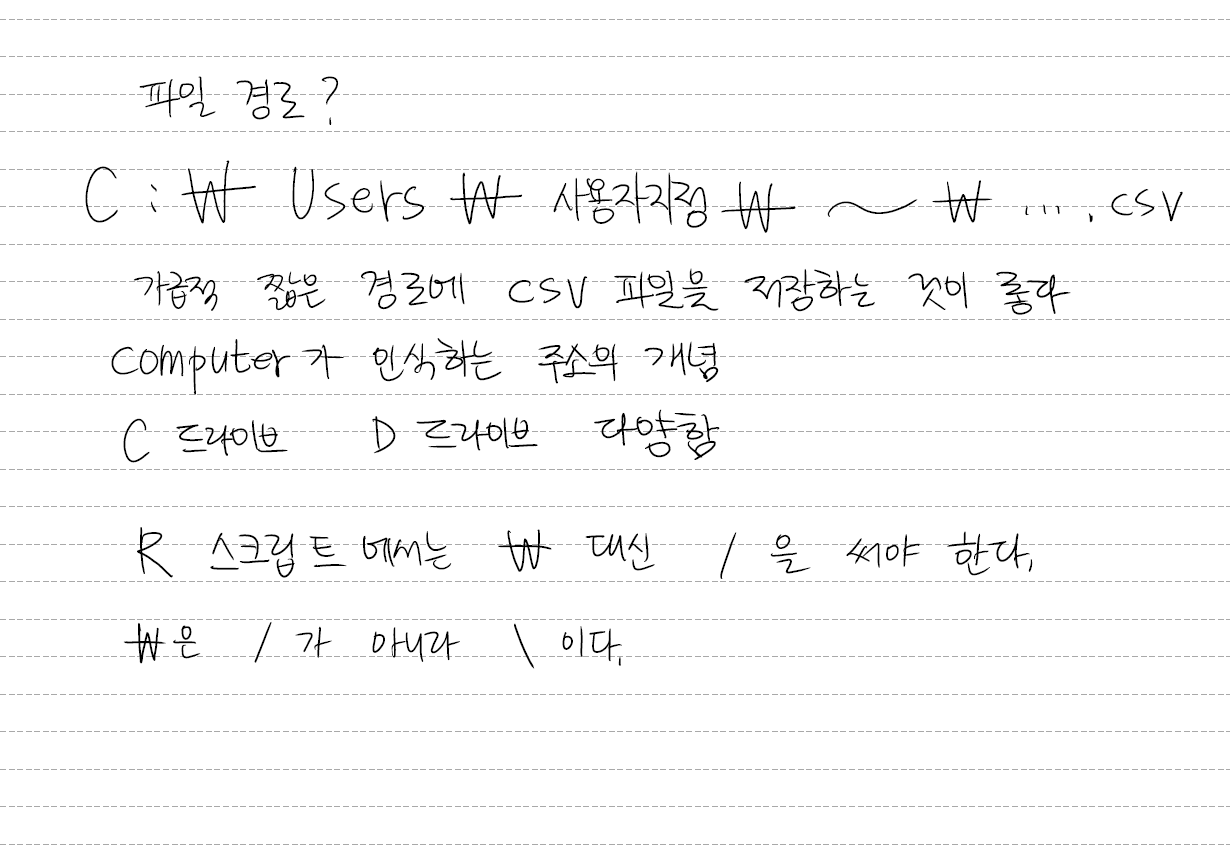 파일 경로?
C:₩ Users ₩ 사용자지정 ₩ ~ ₩ ... .csv
가급적 짧은 경로에 csv 파일을 저장하는 것이 좋다
computer가 인식하는 주소의 개념
C 드라이브 D 드라이브 다양함
R 스크립트에서는 ₩ 대신 / 을 써야 한다.
₩은 / 가 아니라 \ 이다.